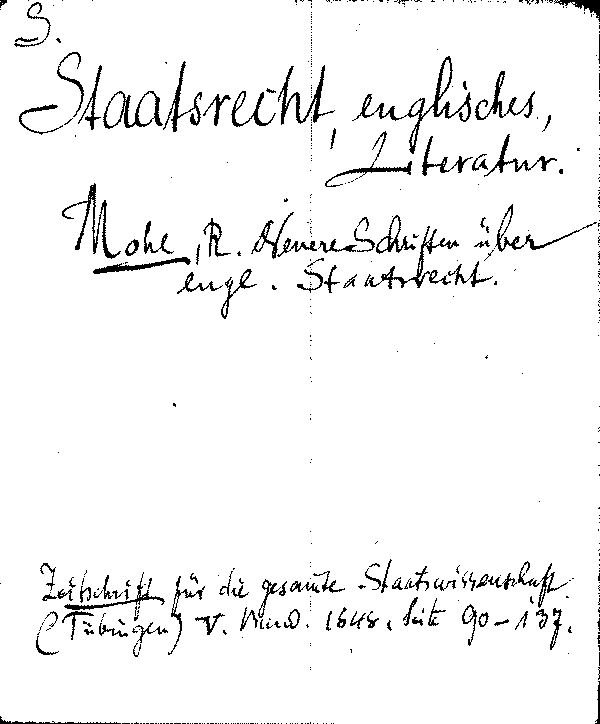 S.
Staatsrecht, englisches,
Literatur.
Mohl, R. Neuere Schriften über
engl. Staatsrecht.
Zeitschrift für die gesamte Staatswissenschaft
(Tübingen) V. Band. 1848. Seite 90–137.